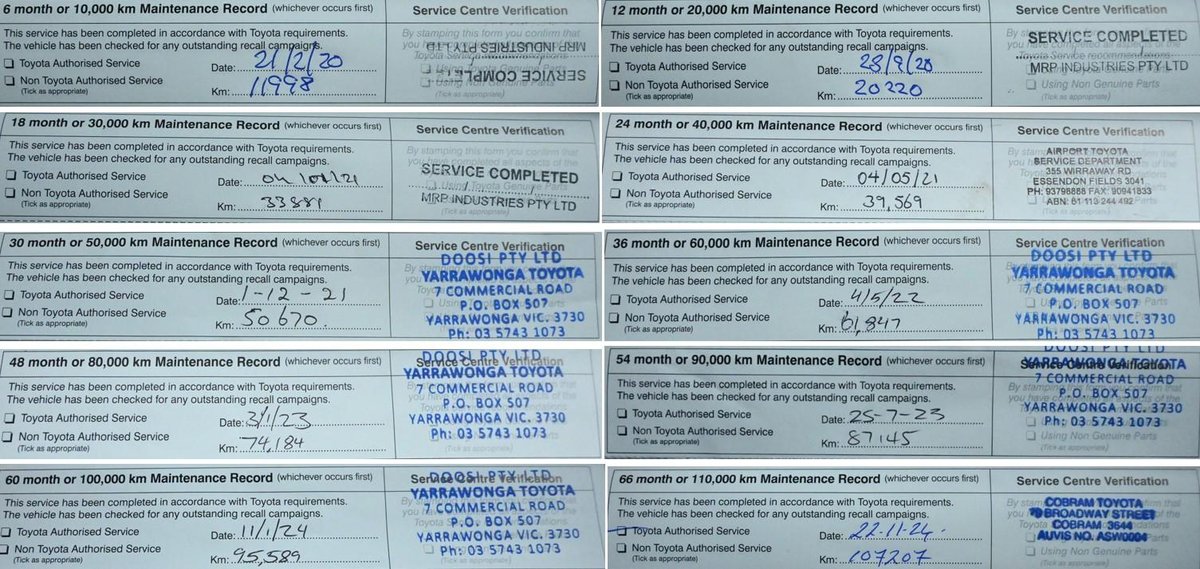 6 month or 10,000 km Maintenance Record (whichever occurs first)
Service Centre Verification
This service has been completed in accordance with Toyota requirements.
The vehicle has been checked for any outstanding recall campaigns.
Toyota Authorised Service
Non Toyota Authorised Service
(Tick as appropriate)
Date: 21/2/20
Km: 11998
By stamping this form you confirm that
MRP INDUSTRIES PTY LTD
SERVICE COMPLETED
(Tick as appropriate)
12 month or 20,000 km Maintenance Record (whichever occurs first)
Service Centre Verification
This service has been completed in accordance with Toyota requirements.
The vehicle has been checked for any outstanding recall campaigns.
Toyota Authorised Service
Non Toyota Authorised Service
(Tick as appropriate)
Date: 28/9/20
Km: 20220
SERVICE COMPLETED
MRP INDUSTRIES PTY LTD
Using Non Genuine Parts
(Tick as appropriate)
18 month or 30,000 km Maintenance Record (whichever occurs first)
Service Centre Verification
This service has been completed in accordance with Toyota requirements.
The vehicle has been checked for any outstanding recall campaigns.
Toyota Authorised Service
Non Toyota Authorised Service
(Tick as appropriate)
Date:
Km: 33881
By stamping this form you confirm that
SERVICE COMPLETED
MRP INDUSTRIES PTY LTD
24 month or 40,000 km Maintenance Record (whichever occurs first)
Service Centre Verification
This service has been completed in accordance with Toyota requirements.
The vehicle has been checked for any outstanding recall campaigns.
Toyota Authorised Service
Non Toyota Authorised Service
(Tick as appropriate)
Date: 04/05/21
Km: 39,569
AIRPORT TOYOTA
SERVICE DEPARTMENT
355 WIRRAWAY RD
ESSENDON FIELDS 3041
PH: 93798888 FAX: 90941833
ABN: 61 113 244 492
30 month or 50,000 km Maintenance Record (whichever occurs first)
Service Centre Verification
This service has been completed in accordance with Toyota requirements.
The vehicle has been checked for any outstanding recall campaigns.
Toyota Authorised Service
Non Toyota Authorised Service
(Tick as appropriate)
Date: 1-12-21
Km: 50670
DOOSI PTY LTD
YARRAWONGA TOYOTA
7 COMMERCIAL ROAD
P.O. BOX 507
YARRAWONGA VIC. 3730
Ph: 03 5743 1073
36 month or 60,000 km Maintenance Record (whichever occurs first)
Service Centre Verification
This service has been completed in accordance with Toyota requirements.
The vehicle has been checked for any outstanding recall campaigns.
Toyota Authorised Service
Non Toyota Authorised Service
(Tick as appropriate)
Date: 4/5/22
Km: 61,847
DOOSI PTY LTD
YARRAWONGA TOYOTA
7 COMMERCIAL ROAD
P.O. BOX 507
YARRAWONGA VIC. 3730
Ph: 03 5743 1073
48 month or 80,000 km Maintenance Record (whichever occurs first)
Service Centre Verification
This service has been completed in accordance with Toyota requirements.
The vehicle has been checked for any outstanding recall campaigns.
Toyota Authorised Service
Non Toyota Authorised Service
(Tick as appropriate)
Date: 3/1/23
Km: 74,184
DOOSI PTY LTD
YARRAWONGA TOYOTA
7 COMMERCIAL ROAD
P.O. BOX 507
YARRAWONGA VIC. 3730
Ph: 03 5743 1073
54 month or 90,000 km Maintenance Record (whichever occurs first)
Service Centre Verification
This service has been completed in accordance with Toyota requirements.
The vehicle has been checked for any outstanding recall campaigns.
Toyota Authorised Service
Non Toyota Authorised Service
(Tick as appropriate)
Date: 25-7-23
Km: 87145
DOOSI PTY LTD
YARRAWONGA TOYOTA
7 COMMERCIAL ROAD
P.O. BOX 507
YARRAWONGA VIC. 3730
Ph: 03 5743 1073
Using Non Genuine Parts
(Tick as appropriate)
60 month or 100,000 km Maintenance Record (whichever occurs first)
Service Centre Verification
This service has been completed in accordance with Toyota requirements.
The vehicle has been checked for any outstanding recall campaigns.
Toyota Authorised Service
Non Toyota Authorised Service
(Tick as appropriate)
Date: 11/1/24
Km: 95,589
DOOSI PTY LTD
YARRAWONGA TOYOTA
7 COMMERCIAL ROAD
P.O. BOX 507
YARRAWONGA VIC. 3730
Ph: 03 5743 1073
66 month or 110,000 km Maintenance Record (whichever occurs first)
Service Centre Verification
This service has been completed in accordance with Toyota requirements.
The vehicle has been checked for any outstanding recall campaigns.
Toyota Authorised Service
Non Toyota Authorised Service
(Tick as appropriate)
Date: 22-11-24
Km: 107207
COBRAM TOYOTA
BROADWAY STREET
COBRAM 3644
AUVIS NO. ASW0004
Using Non Genuine Parts
(Tick as appropriate)